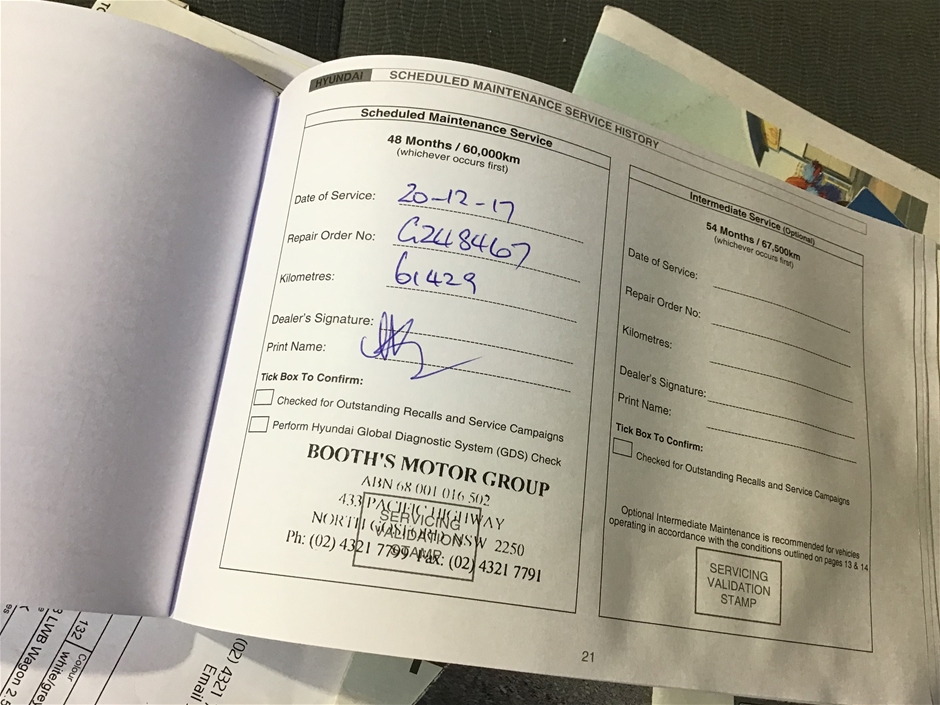 HYUNDAI SCHEDULED MAINTENANCE SERVICE HISTORY
Scheduled Maintenance Service
48 Months / 60,000km
(whichever occurs first)
Date of Service: 20-12-17
Repair Order No: G248467
Kilometres: 61429
Dealer's Signature:
Print Name:
Tick Box To Confirm:
Checked for Outstanding Recalls and Service Campaigns
Perform Hyundai Global Diagnostic System (GDS) Check
BOOTH'S MOTOR GROUP
ABN 68 001 016 502
433 PACIFIC HIGHWAY
NORTH GOSFORD NSW 2250
Ph: (02) 4321 7799 Fax: (02) 4321 7791
SERVICING
VALIDATION
STAMP
Intermediate Service (Optional)
54 Months / 67,500km
(whichever occurs first)
Date of Service:
Repair Order No:
Kilometres:
Dealer's Signature:
Print Name:
Tick Box To Confirm:
Checked for Outstanding Recalls and Service Campaigns
Optional Intermediate Maintenance is recommended for vehicles
operating in accordance with the conditions outlined on pages 13 & 14
SERVICING
VALIDATION
STAMP
21
LWB Wagon 2.5
132
Colour
white/grey
(02) 4321
Email